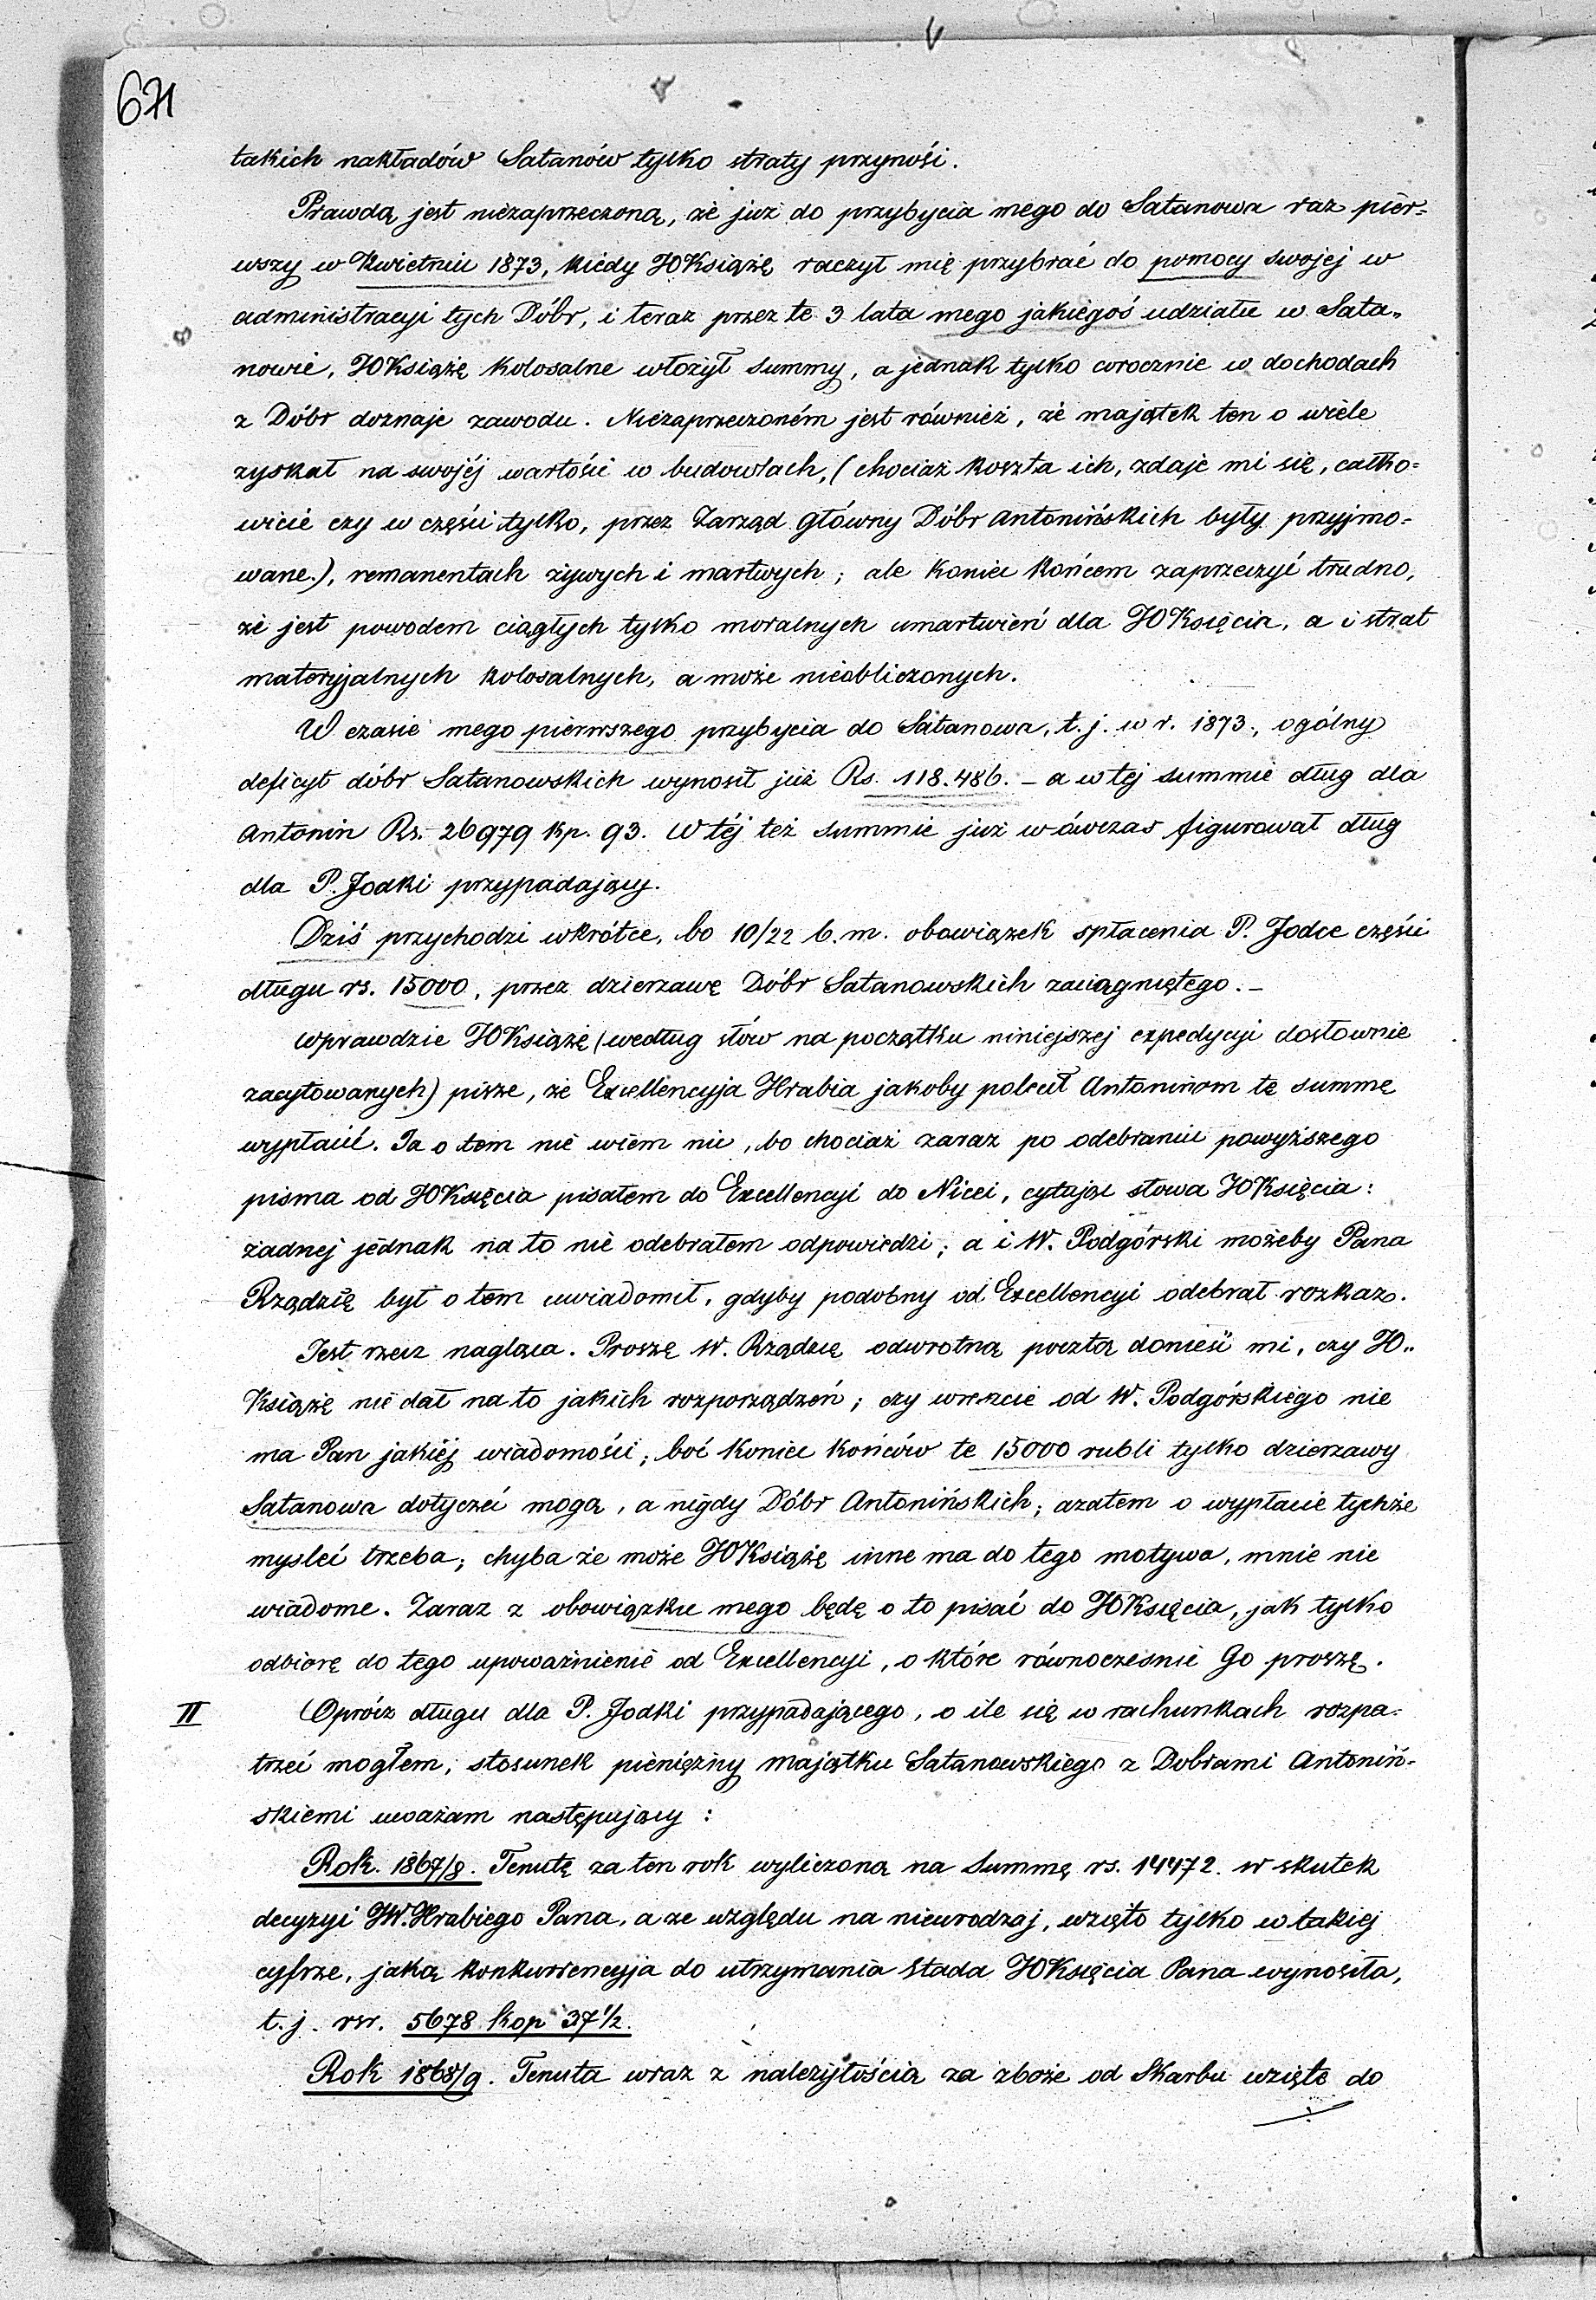 671
takich nakładów Satanów tylko straty przynosi.
Prawdą jest niezaprzeczoną, że już do przybycia mego do Satanowa raz pier-
wszy w Kwietniu 1873, kiedy JOKsiążę raczył mię przybrać do pomocy swojej w
administracyi tych Dóbr, i teraz przez te 3 lata mego jakiegoś udziału w Sata-
nowie, JOKsiążę kolosalne włożył summy, a jednak tylko corocznie w dochodach
z Dóbr doznaje zawodu. Niezaprzeczoném jest również, że majątek ten o wiele
zyskał na swojéj wartości w budowlach, (chociaż koszta ich, zdaje mi się, całko-
wicie czy w części tylko, przez Zarząd główny Dóbr Antonińskich były przyjmo-
wane.), remanentach żywych i martwych; ale koniec końcem zaprzeczyć trudno,
że jest powodem ciągłych tylko moralnych umartwień dla JOKsięcia, a i strat
materyjalnych kolosalnych, a może nieobliczonych.
W czasie mego pierwszego przybycia do Satanowa, t.j. w r. 1873, ogólny
deficyt dóbr Satanowskich wynosił już Rs. 118.486. – a w tej summie dług dla
Antonin Rs. 26979 kp. 93. W téj też summie już wówczas figurował dług
dla P. Jodki przypadający.
Dziś przychodzi wkrótce, bo 10/22 b.m. obowiązek spłacenia P. Jodce części
długu rs. 15000, przez dzierżawę Dóbr Satanowskich zaciągniętego. –
Wprawdzie JOKsiążę (według słów na początku niniejszej expedycyi dosłownie
zacytowanych) pisze, że Excellencyja Hrabia jakoby polecił Antoninom tę summę
wypłacić. Ja o tem nie wiem nic, bo chociaż zaraz po odebraniu powyższego
pisma od JOKsięcia pisałem do Excellencyi do Nicei, cytując słowa JOKsięcia:
żadnej jednak na to nie odebrałem odpowiedzi; a i W. Podgórski możeby Pana
Rządzcę był o tem uwiadomił, gdyby podobny od Excellencyi odebrał rozkaz.
Jest rzecz nagląca. Proszę W. Rządzcę odwrotną pocztą donieść mi, czy JO..
Książę nie dał na to jakich rozporządzeń; czy wreszcie od W. Podgórskiego nie
ma Pan jakiéj wiadomości; boć koniec końców te 15000 rubli tylko dzierżawy
Satanowa dotyczeć mogą, a nigdy Dóbr Antonińskich; azatem o wypłacie tychże
mysleć trzeba; chyba że może JOKsiążę inne ma do tego motywa, mnie nie
wiadome. Zaraz z obowiązku mego będę o to pisać do JOKsięcia, jak tylko
odbiorę do tego upoważnienie od Excellencyi, o które równocześnie Go proszę.
II Oprócz długu dla P. Jodki przypadającego, o ile się w rachunkach rozpa-
trzeć mogłem, stosunek pieniężny majątku Satanowskiego z Dobrami Antoniń-
skiemi uważam następujący:
Rok. 1867/8. Tenutę za ten rok wyliczoną na Summę rs. 14472. w skutek
decyzyi JW. Hrabiego Pana, a ze względu na nieurodzaj, wzięto tylko w takiej
cyfrze, jaką konkurrencyja do utrzymania Stada JOKsięcia Pana wynosiła,
t.j. rsr. 5678 kop 37½.
Rok 1868/9. Tenuta wraz z należytością za zboże od Skarbu wzięte do